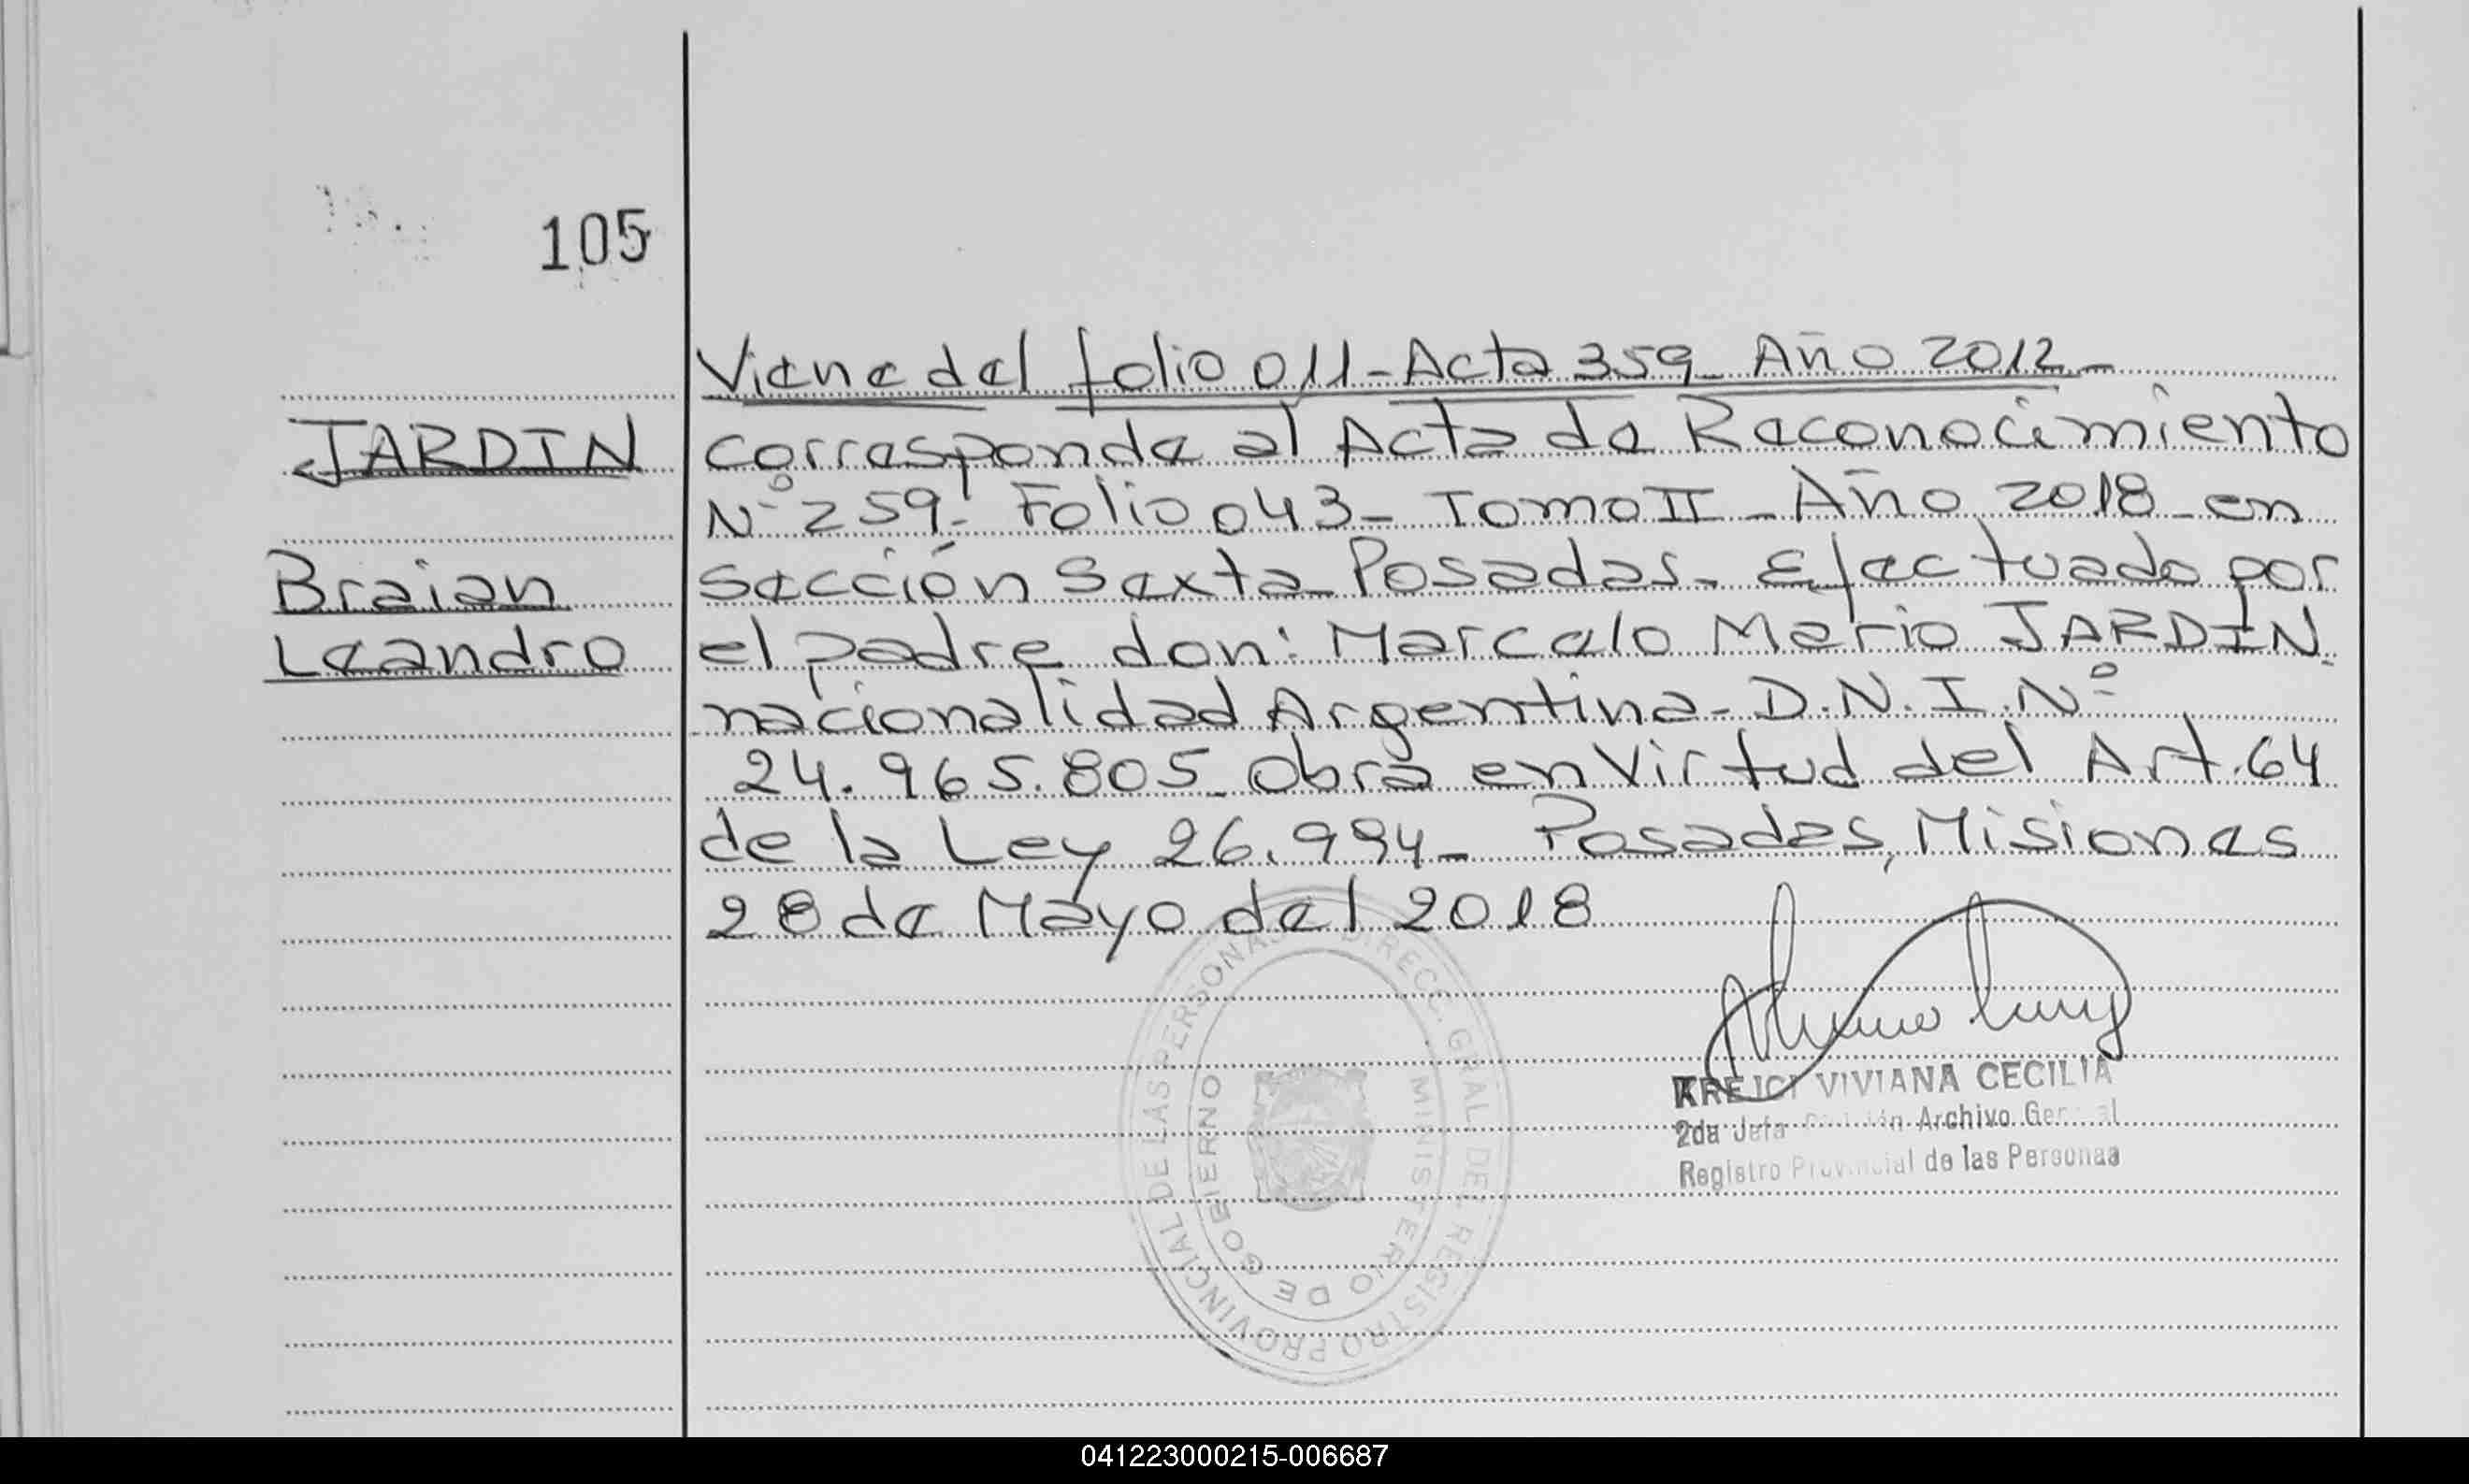 105
Viene del folio 011-Acta 359- Año 2012-
JARDIN
corresponde al Acta de Reconocimiento
Nº 259- Folio 043- Tomo II - Año 2018 - en
Braian
Sección Sexta- Posadas- Efectuado por
Leandro
el padre don: Marcelo Mario JARDIN-
nacionalidad Argentina- D.N.I.Nº
24.965.805- obra en Virtud del Art. 64
de la Ley 26.994- Posadas, Misiones
28 de Mayo del 2018
DIRECC. GRAL DEL REGISTRO PROVINCIAL DE LAS PERSONAS
MINISTERIO DE GOBIERNO
KREJCI VIVIANA CECILIA
2da Jefa División Archivo General
Registro Provincial de las Personas
041223000215-006687